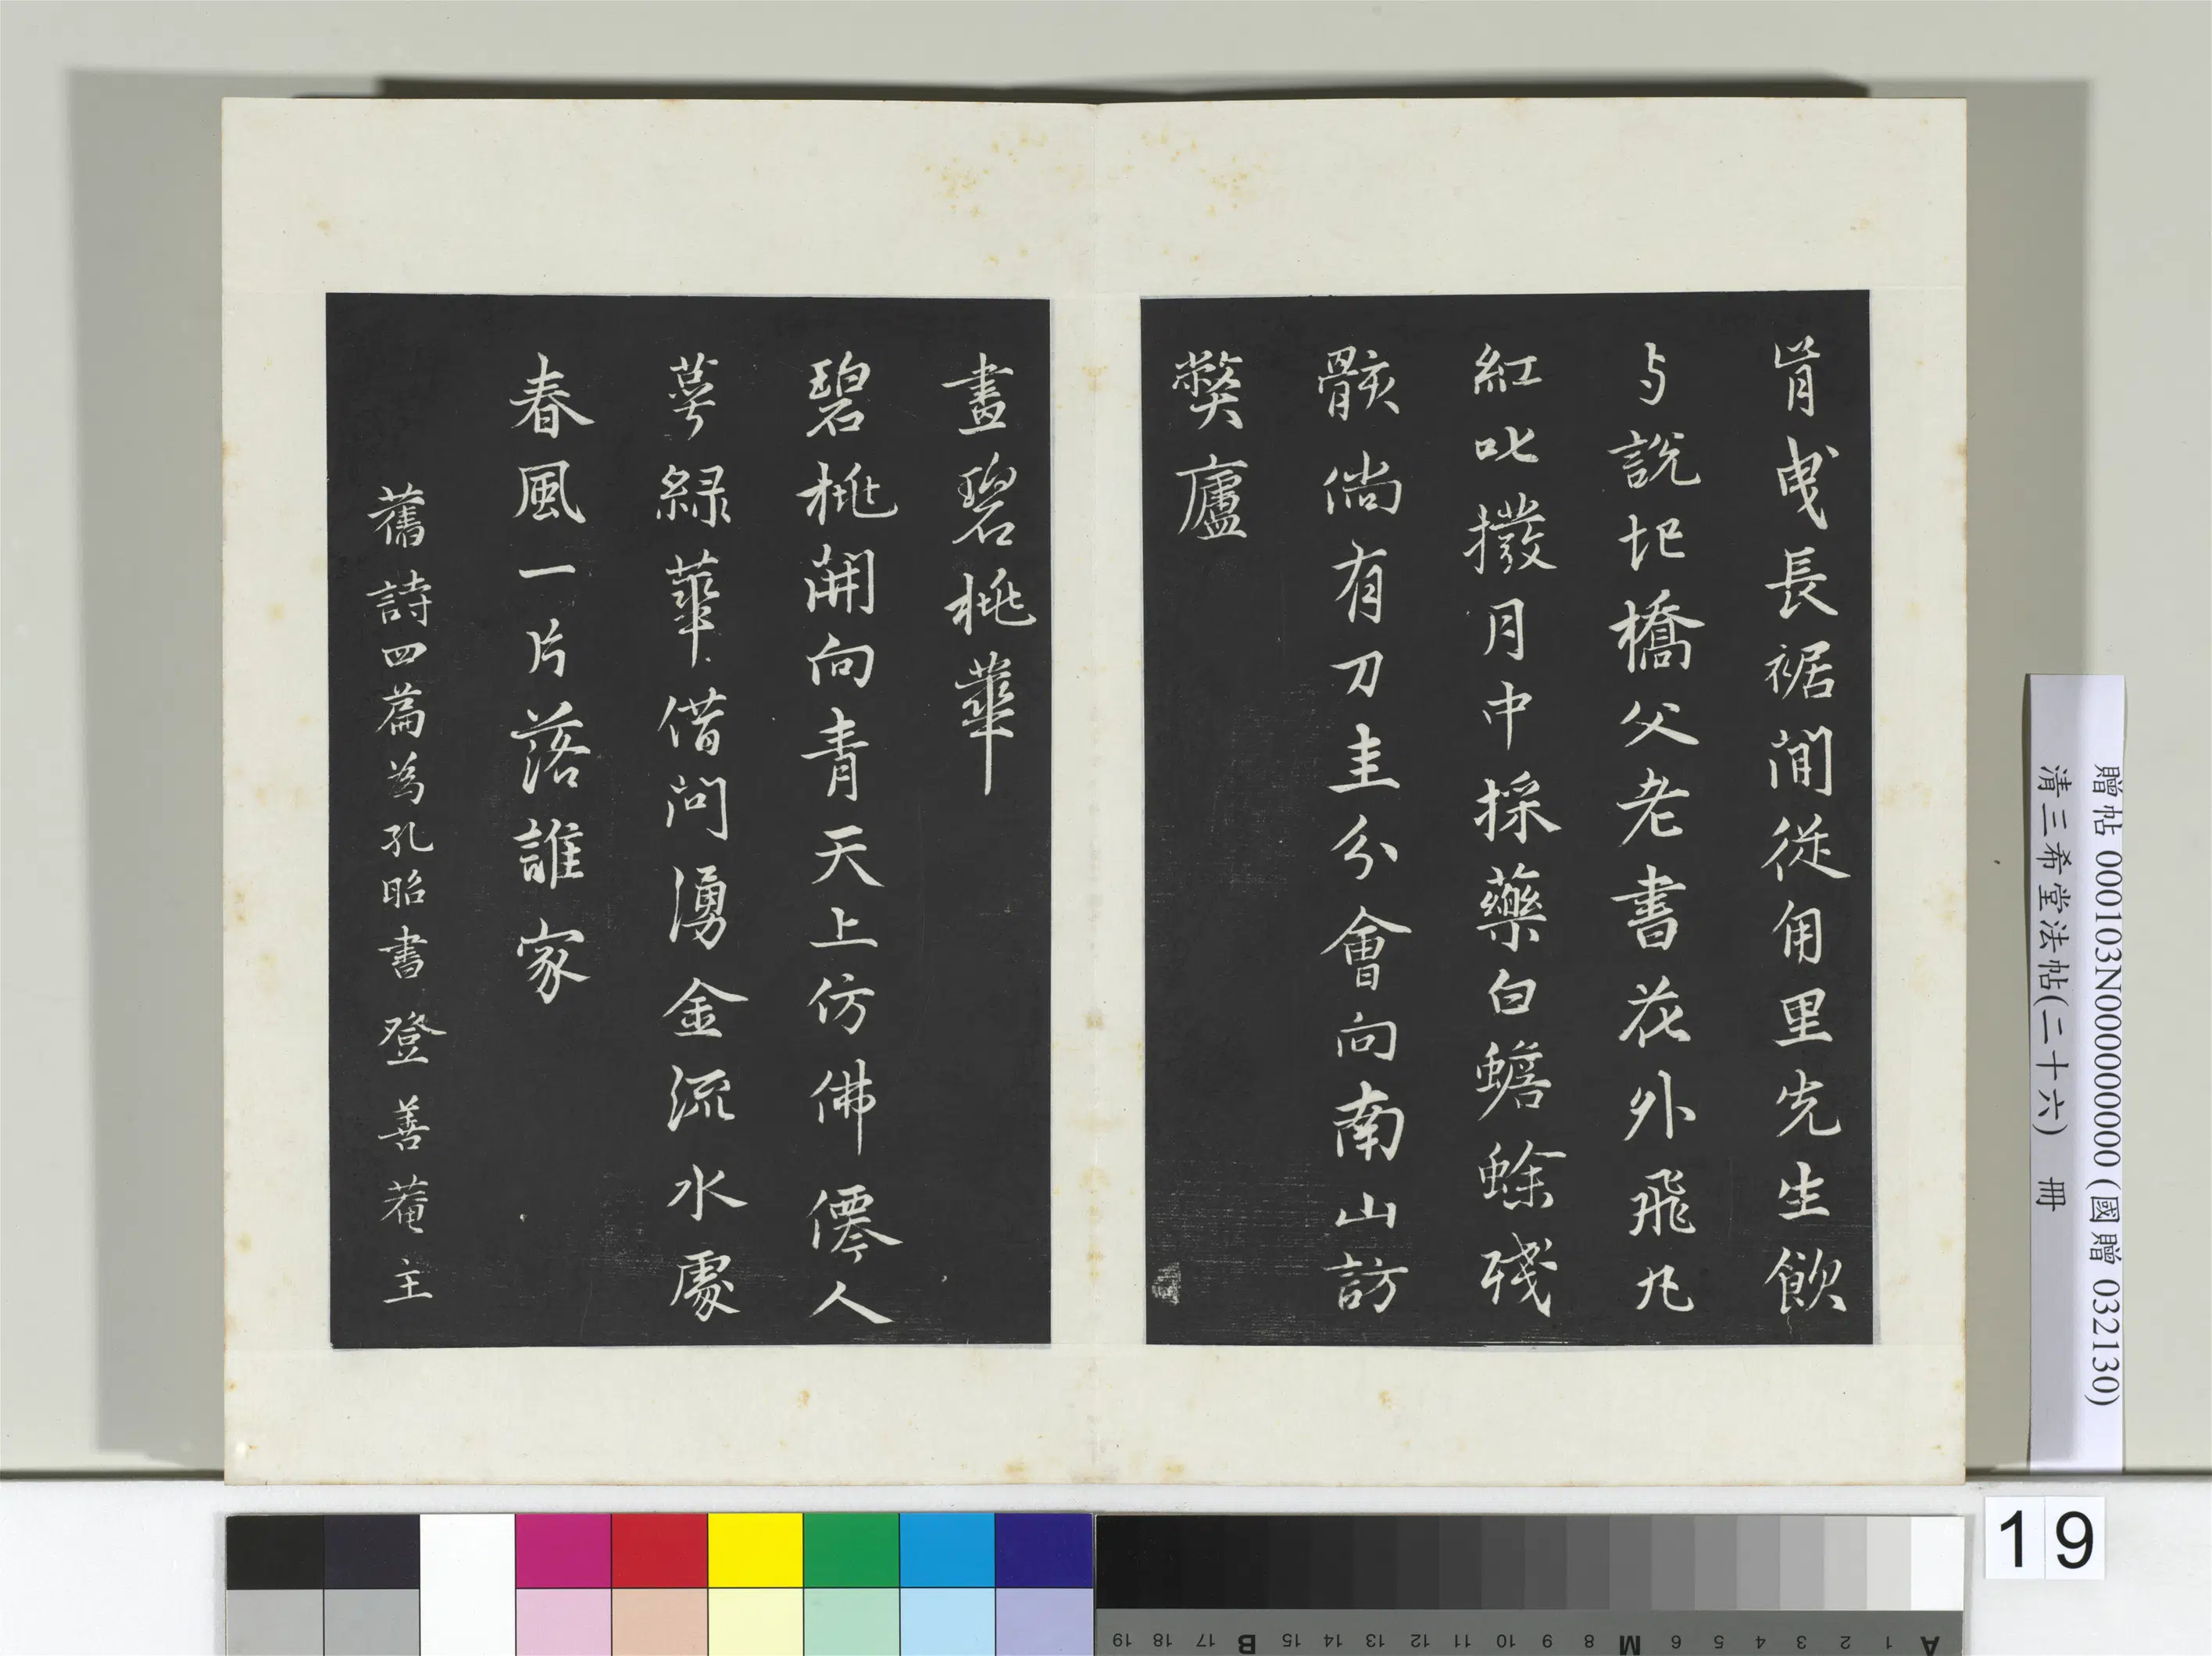 肯曳長裾閒從甪里先生飲
与說圯橋父老書花外飛丸
紅叱撥月中採藥白蟾蜍殘
骸倘有刀圭分會向南山訪
獘廬
畫碧桃華
碧桃開向青天上仿佛僊人
萼綠華借問湧金流水處
春風一片落誰家
舊詩四篇為孔昭書登善菴主
贈帖 000103N000000000 (國贈 032130)
清三希堂法帖(二十六) 冊
19
A 1 2 3 4 5 6 M 8 9 10 11 12 13 14 15 B 17 18 19